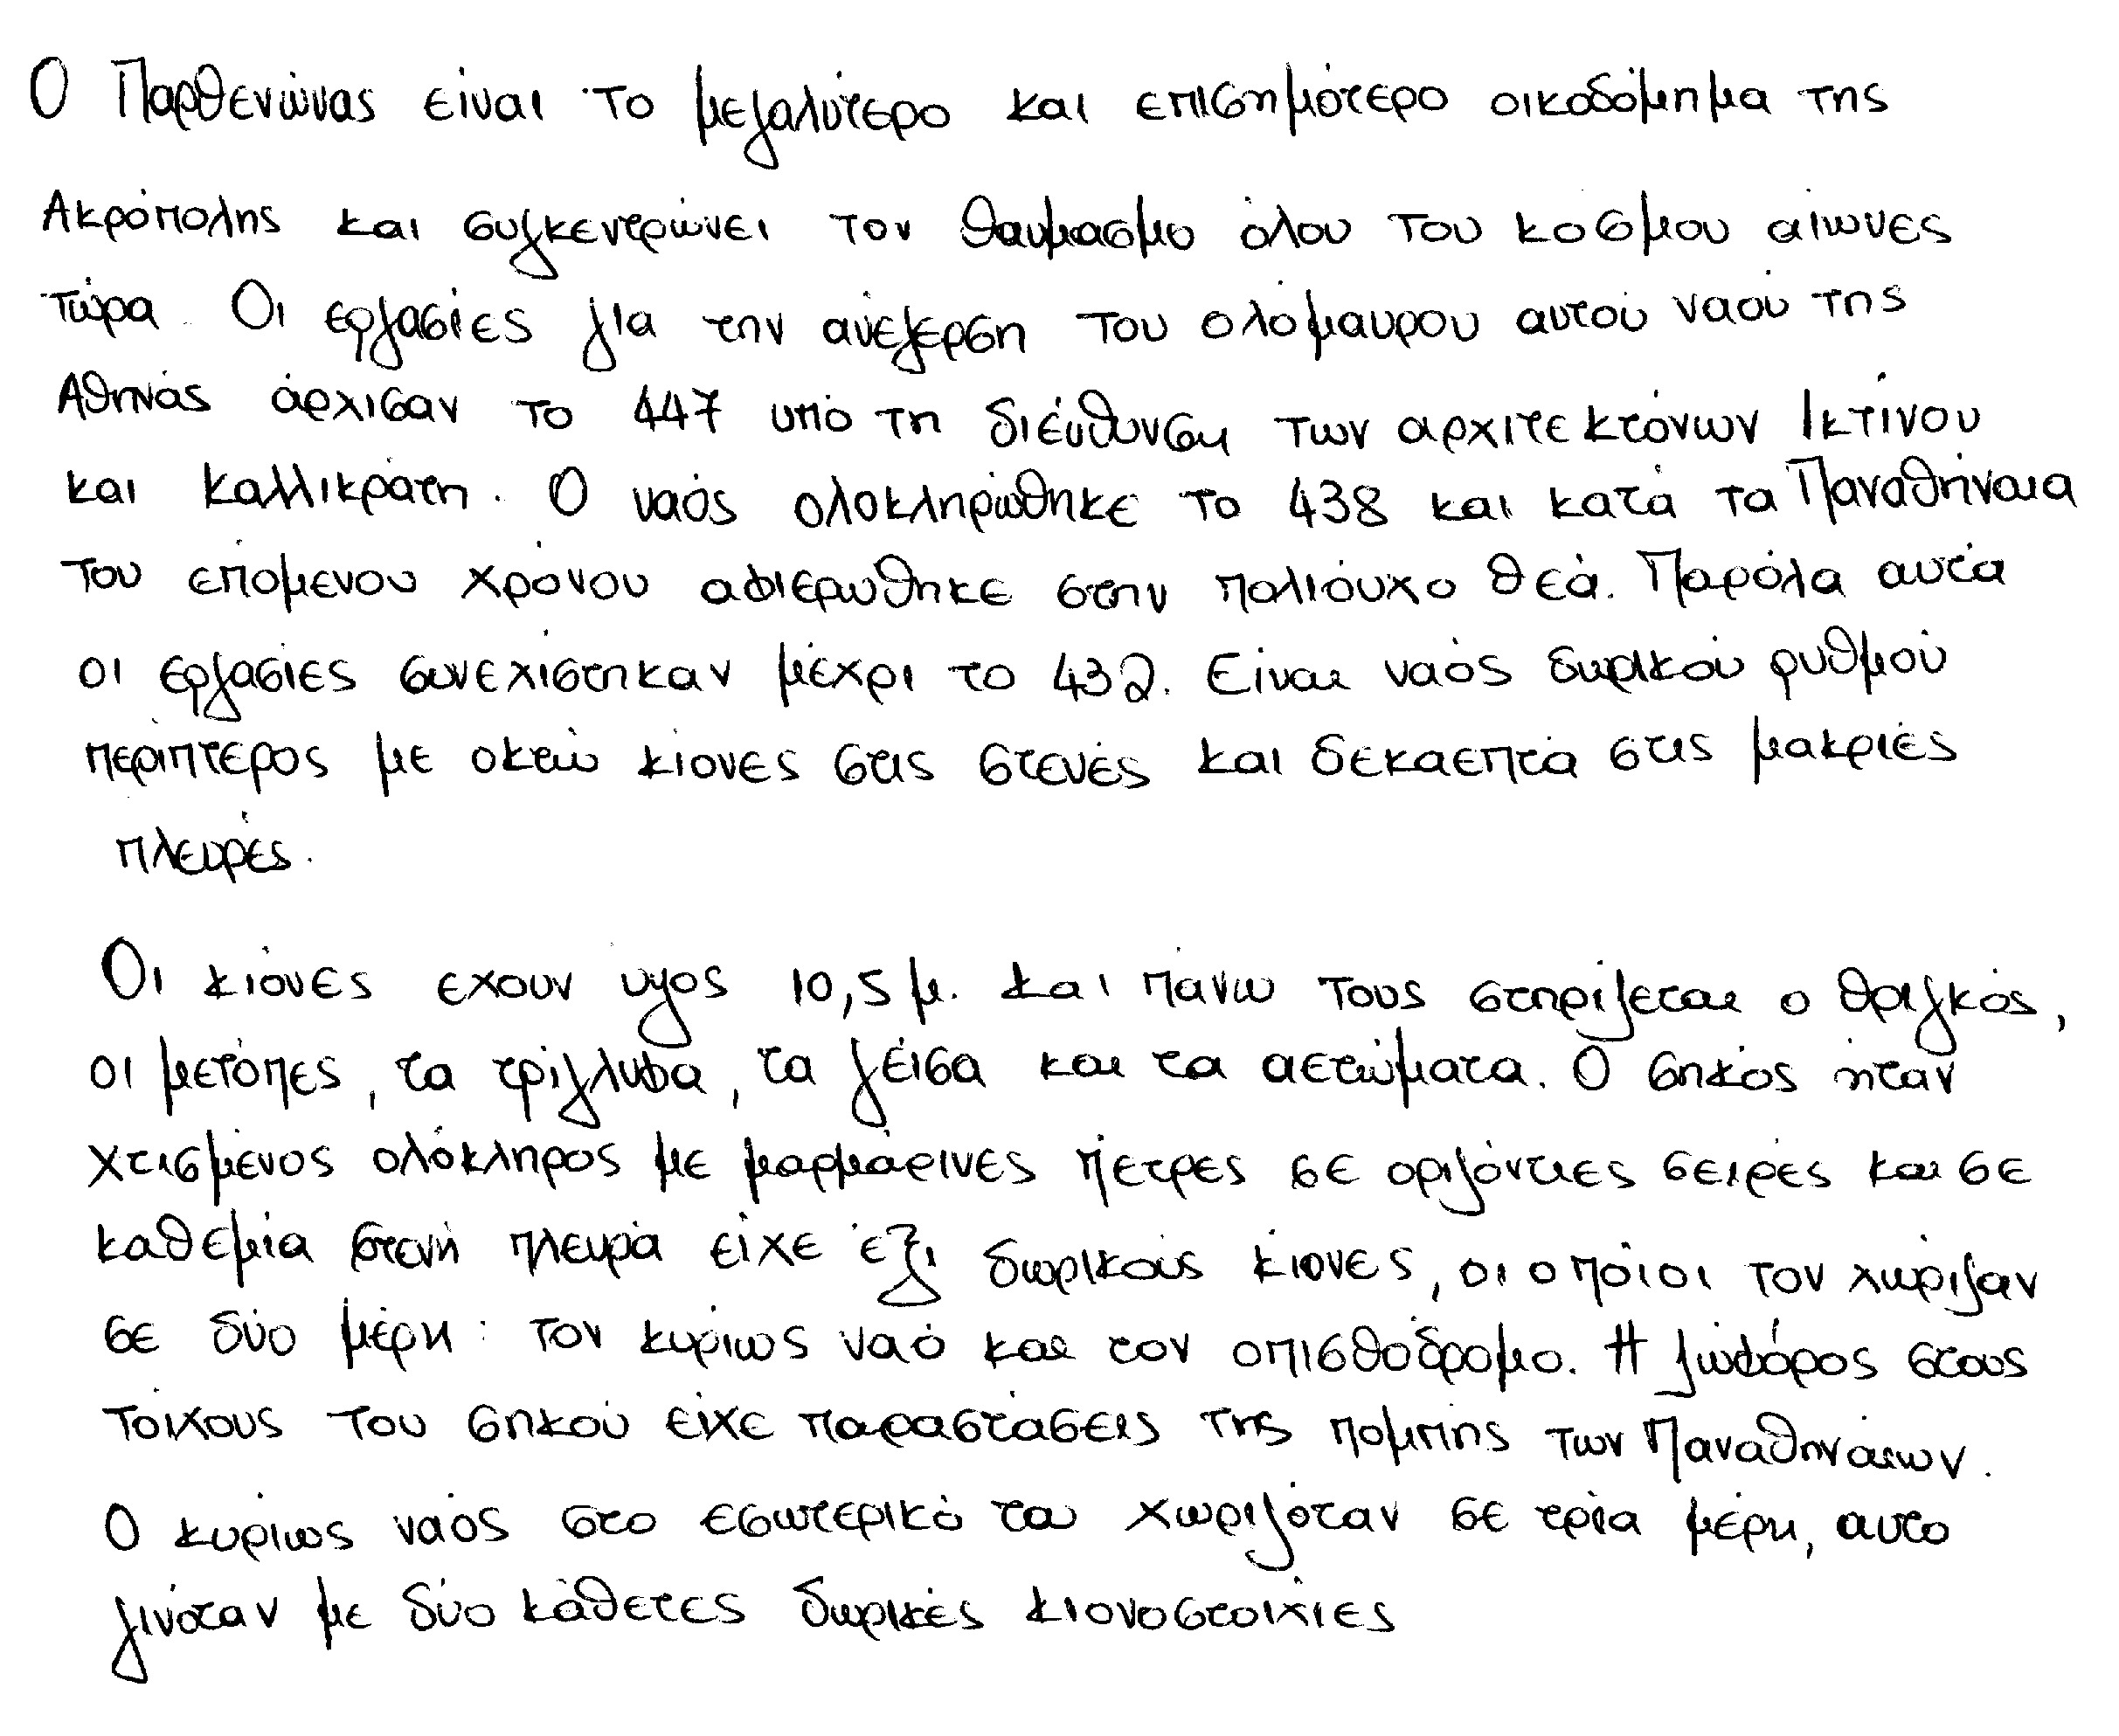 Ο Παρθενώνας είναι το μεγαλύτερο και επισημότερο οικοδόμημα της
Ακρόπολης και συγκεντρώνει τον θαυμασμο όλου του κοσμου αιωνες
τώρα. Οι εργασίες για την ανέγερση του ολόμαυρου αυτού ναού της
Αθηνάς άρχισαν το 447 υπό τη διέυθυνση των αρχιτεκτόνων Ικτίνου
και Καλλικράτη. Ο ναός ολοκληρώθηκε το 438 και κατά τα Παναθήναια
του επόμενου χρόνου αφιερωθηκε στην πολιόυχο θεά. Παρόλα αυτά
οι εργασίες συνεχίστηκαν μέχρι το 432. Είναι ναός δωρικού ρυθμού
περίπτερος με οκτώ κίονες στις στενές και δεκαεπτά στις μακριές
πλευρές.
Οι κίονες εχουν υψος 10,5 μ. και πάνω τους στηρίζεται ο θριγκός,
οι μετόπες, τα τρίγλυφα, τα γέισα και τα αετώματα. Ο σηκός ήταν
χτισμένος ολόκληρος με μαρμάρινες πέτρες σε οριζόντιες σειρές και σε
καθεμία στενή πλευρά είχε έξι δωρικούς κίονες, οι οποίοι τον χώριζαν
σε δύο μέρη: τον κυρίως ναό και τον οπισθόδρομο. Η ζωφόρος στους
τοίχους του σηκού είχε παραστάσεις της πομπής των Παναθηνάιων.
Ο κυρίως ναός στο εσωτερικό του χωριζόταν σε τρία μέρη, αυτο
γινόταν με δύο κάθετες δωρικές κιονοστοιχίες